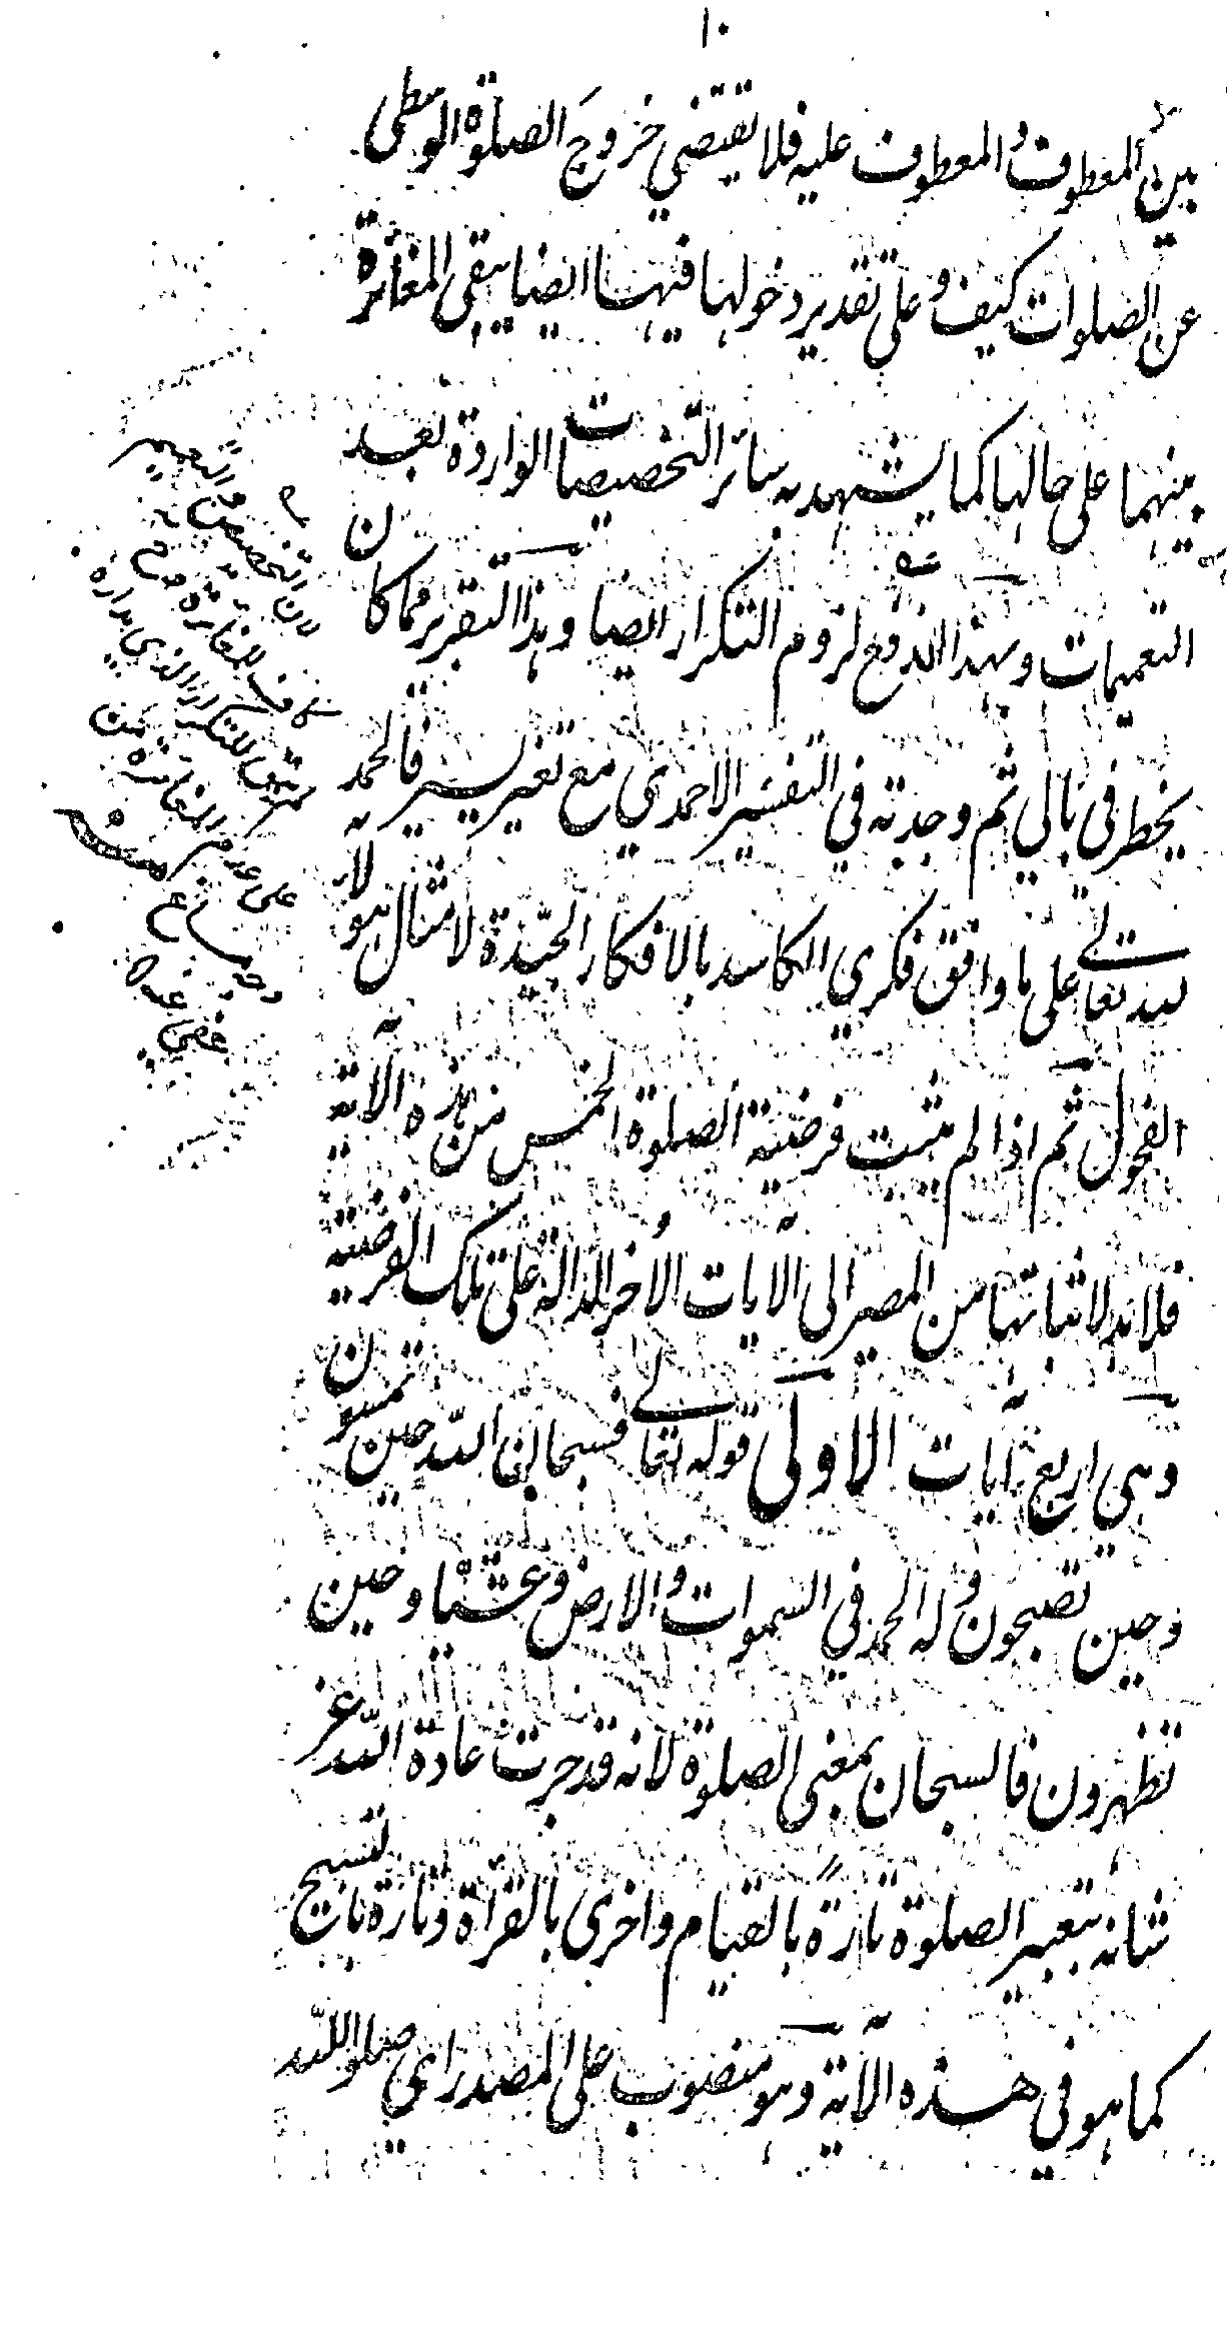 ١٠
بين المعطوف والمعطوف عليه فلا يقتضي خروجَ الصلوة الوسطى
عن الصلوات كيف و على تقدير دخولها فيها ايضا يبقى المغائرة
بينهما على حالها كما يشهد به سائر التخصيصات الواردة بعد
التعميمات و بهذا اندفع لزوم التكرار ايضا و هذا التقرير مما كان
يخطر في بالي ثم وجدته في التفسير الاحمدي مع تغير يسير فالحمد
لله تعالى على ما وافق فكري الكاسد بالافكار الجيّدة لامثال هولاء
الفحول ثم اذا لم يثبت فرضية الصلوة الخمس من هذه الآية
فلا بد لاثباتها من المصير الى الآيات الاُخر الدالة على تلك الفرضية
و هي اربع آيات الاولى قوله تعالى فسبحان الله حين تمسون
و حين تصبحون و له الحمد في السموات و الارض و عشيا و حين
تظهرون فالسبحان بمعنى الصلوة لانه قد جرت عادة الله عز
شانه بتعبير الصلوة تارةً بالقيام و اخرى بالقرآة و تارة بالتسبيح
كما هو في هذه الآية و هو منصوب على المصدر اي صلوا لله
لان التخصيص و التعميم
كاف للمغائرة
للتكرار الذي مداره
على عدم المغائرة
عفي عنه